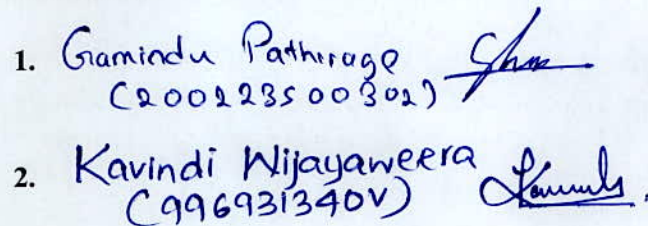 1. Gamindu Pathirage
(200223500302)
2. Kavindi Wijayaweera
(996931340V)